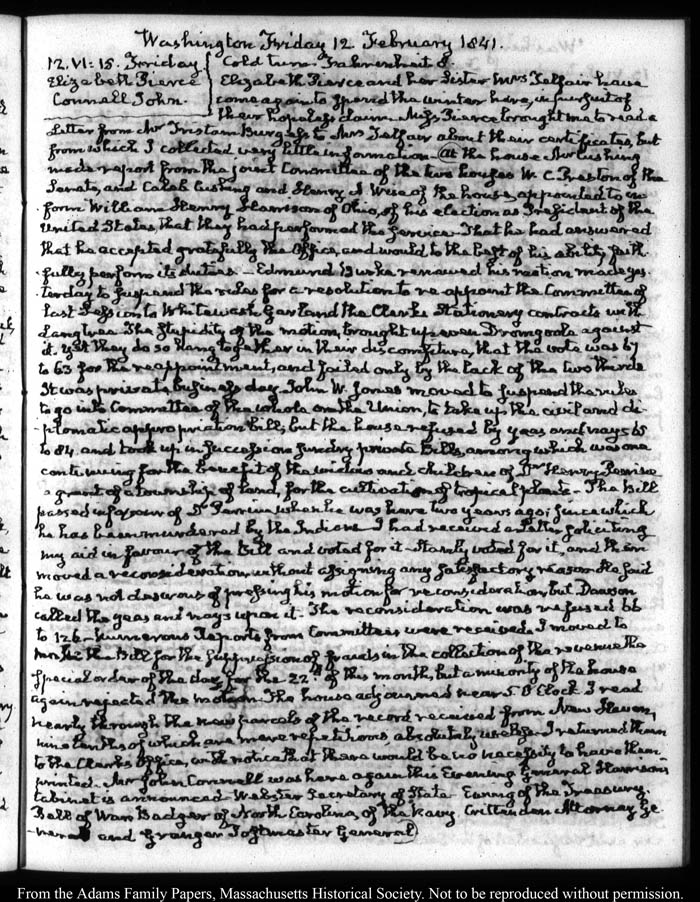 Washington Friday 12. February 1841.
12. VI: 15. Friday
Elizabeth Pierce
Connell John.
Cold turn. Fahrenheit 8.
Elizabeth Pierce and her Sister Mrs Telfair have
come again to spend the winter here, in pursuit of
their hopeless claim. Miss Pierce brought me to read a
Letter from Mr Tristam Burgess to Mrs Telfair about their certificates, but
from which I collected very little information. At the house Mr Cushing
made report from the joint Committee of the two houses W. C. Preston of the
Senate, and Caleb Cushing and Henry A Wise of the house, appointed to in-
form William Henry Harrison of Ohio, of his election as President of the
United States, that they had performed the service. That he had answered
that he accepted gratefully the Office, and would to the best of his ability faith-
fully perform its duties. – Edmund Burke renewed his motion made yes-
terday to suspend the rules for a resolution to re-appoint the Committee of
last Session to Whitewash Garland the Clerk's Stationery contracts with
Langtree. The stupidity of the motion, brought up even Dromgoole against
it. Yet they do so hang together in their discomfiture, that the vote was 67
to 63 for the reappointment, and failed only by the lack of the two thirds
It was private business day. John W. Jones moved to suspend the rules
to go into Committee of the whole on the Union, to take up the civil and di-
plomatic appropriation bill; but the house refused by yeas and nays 65
to 84. and took up in succession sundry private Bills, among which was one
continuing for the benefit of the widow and children of Dr Henry Perrine
a grant of a township of land, for the cultivation of tropical plants – The Bill
passed in favour of Dr Perrine when he was here two years ago; since which
he has been murdered by the Indians. I had received a letter soliciting
my aid in favour of the Bill and voted for it – Stanly voted for it, and then
moved a reconsideration, without assigning any satisfactory reason. He said
he was not desirous of pressing his motion for reconsideration but Dawson
called the yeas and nays upon it – The reconsideration was refused 66
to 126 – Numerous reports from Committees were received. I moved to
make the Bill for the suppression of frauds in the collection of the revenue the
special order of the day for the 22d of this month, but a minority of the house
again rejected the motion. The house adjourned near 5. O'Clock. I read
nearly through the new parcels of the record received from New Haven,
nine tenths of which are mere repetitions, absolutely useless. I returned them
to the Clerk's Office, with notice that there would be no necessity to have them
printed. Mr John Connell was here again this Evening General Harrison's
Cabinet is announced – Webster Secretary of State Ewing of the Treasury.
Bell of War. Badger of North Carolina, of the Navy. Crittenden Attorney Ge-
neral and Granger Postmaster General
From the Adams Family Papers, Massachusetts Historical Society. Not to be reproduced without permission.